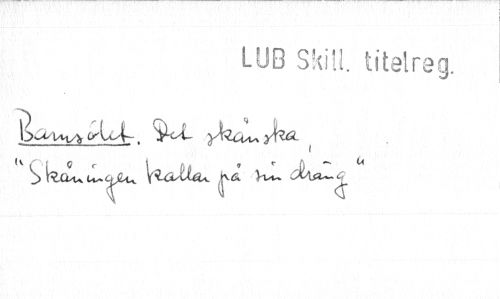 LUB Skill. titelreg.
Barnsölet. Det skånska,
"Skåningen kallar på sin dräng"